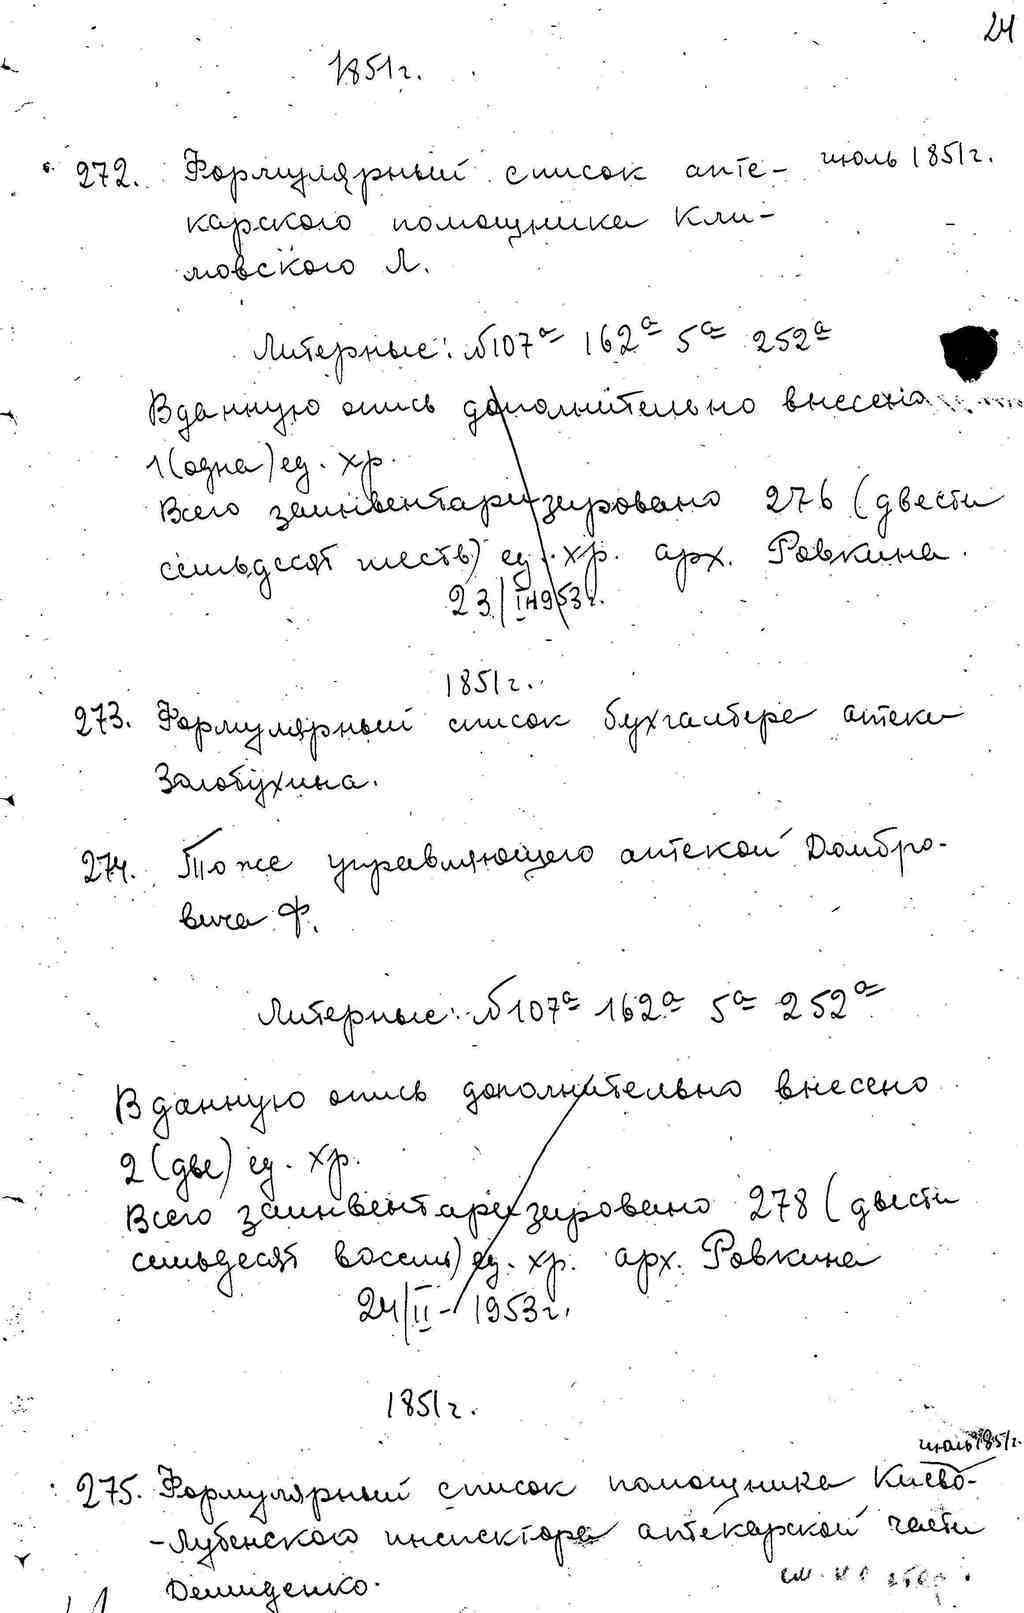 24
1851г.
272. Формулярный список апте- июль 1851г.
карского помощника Кли-
мовского Л.
Литерные: №107а 162а 5а 252а
В данную опись дополнительно внесена
1 (одна) ед. хр.
Всего заинвентаризировано 276 (двести
семьдесят шесть) ед. хр. арх. Ровкина.
23/II-1953г.
1851г.
273. Формулярный список бухгалтера аптеки
Залобухина.
274. То же управляющего аптекой Домбро-
вича Ф.
Литерные: №107а 162а 5а 252а
В данную опись дополнительно внесено
2 (две) ед. хр.
Всего заинвентаризировано 278 (двести
семьдесят восемь) ед. хр. арх. Ровкина
24/II-1953г.
1851г.
июль 1851г.
275. Формулярный список помощника Киево-
-Лубенского инспектора аптекарской части
Демиденко.
см.